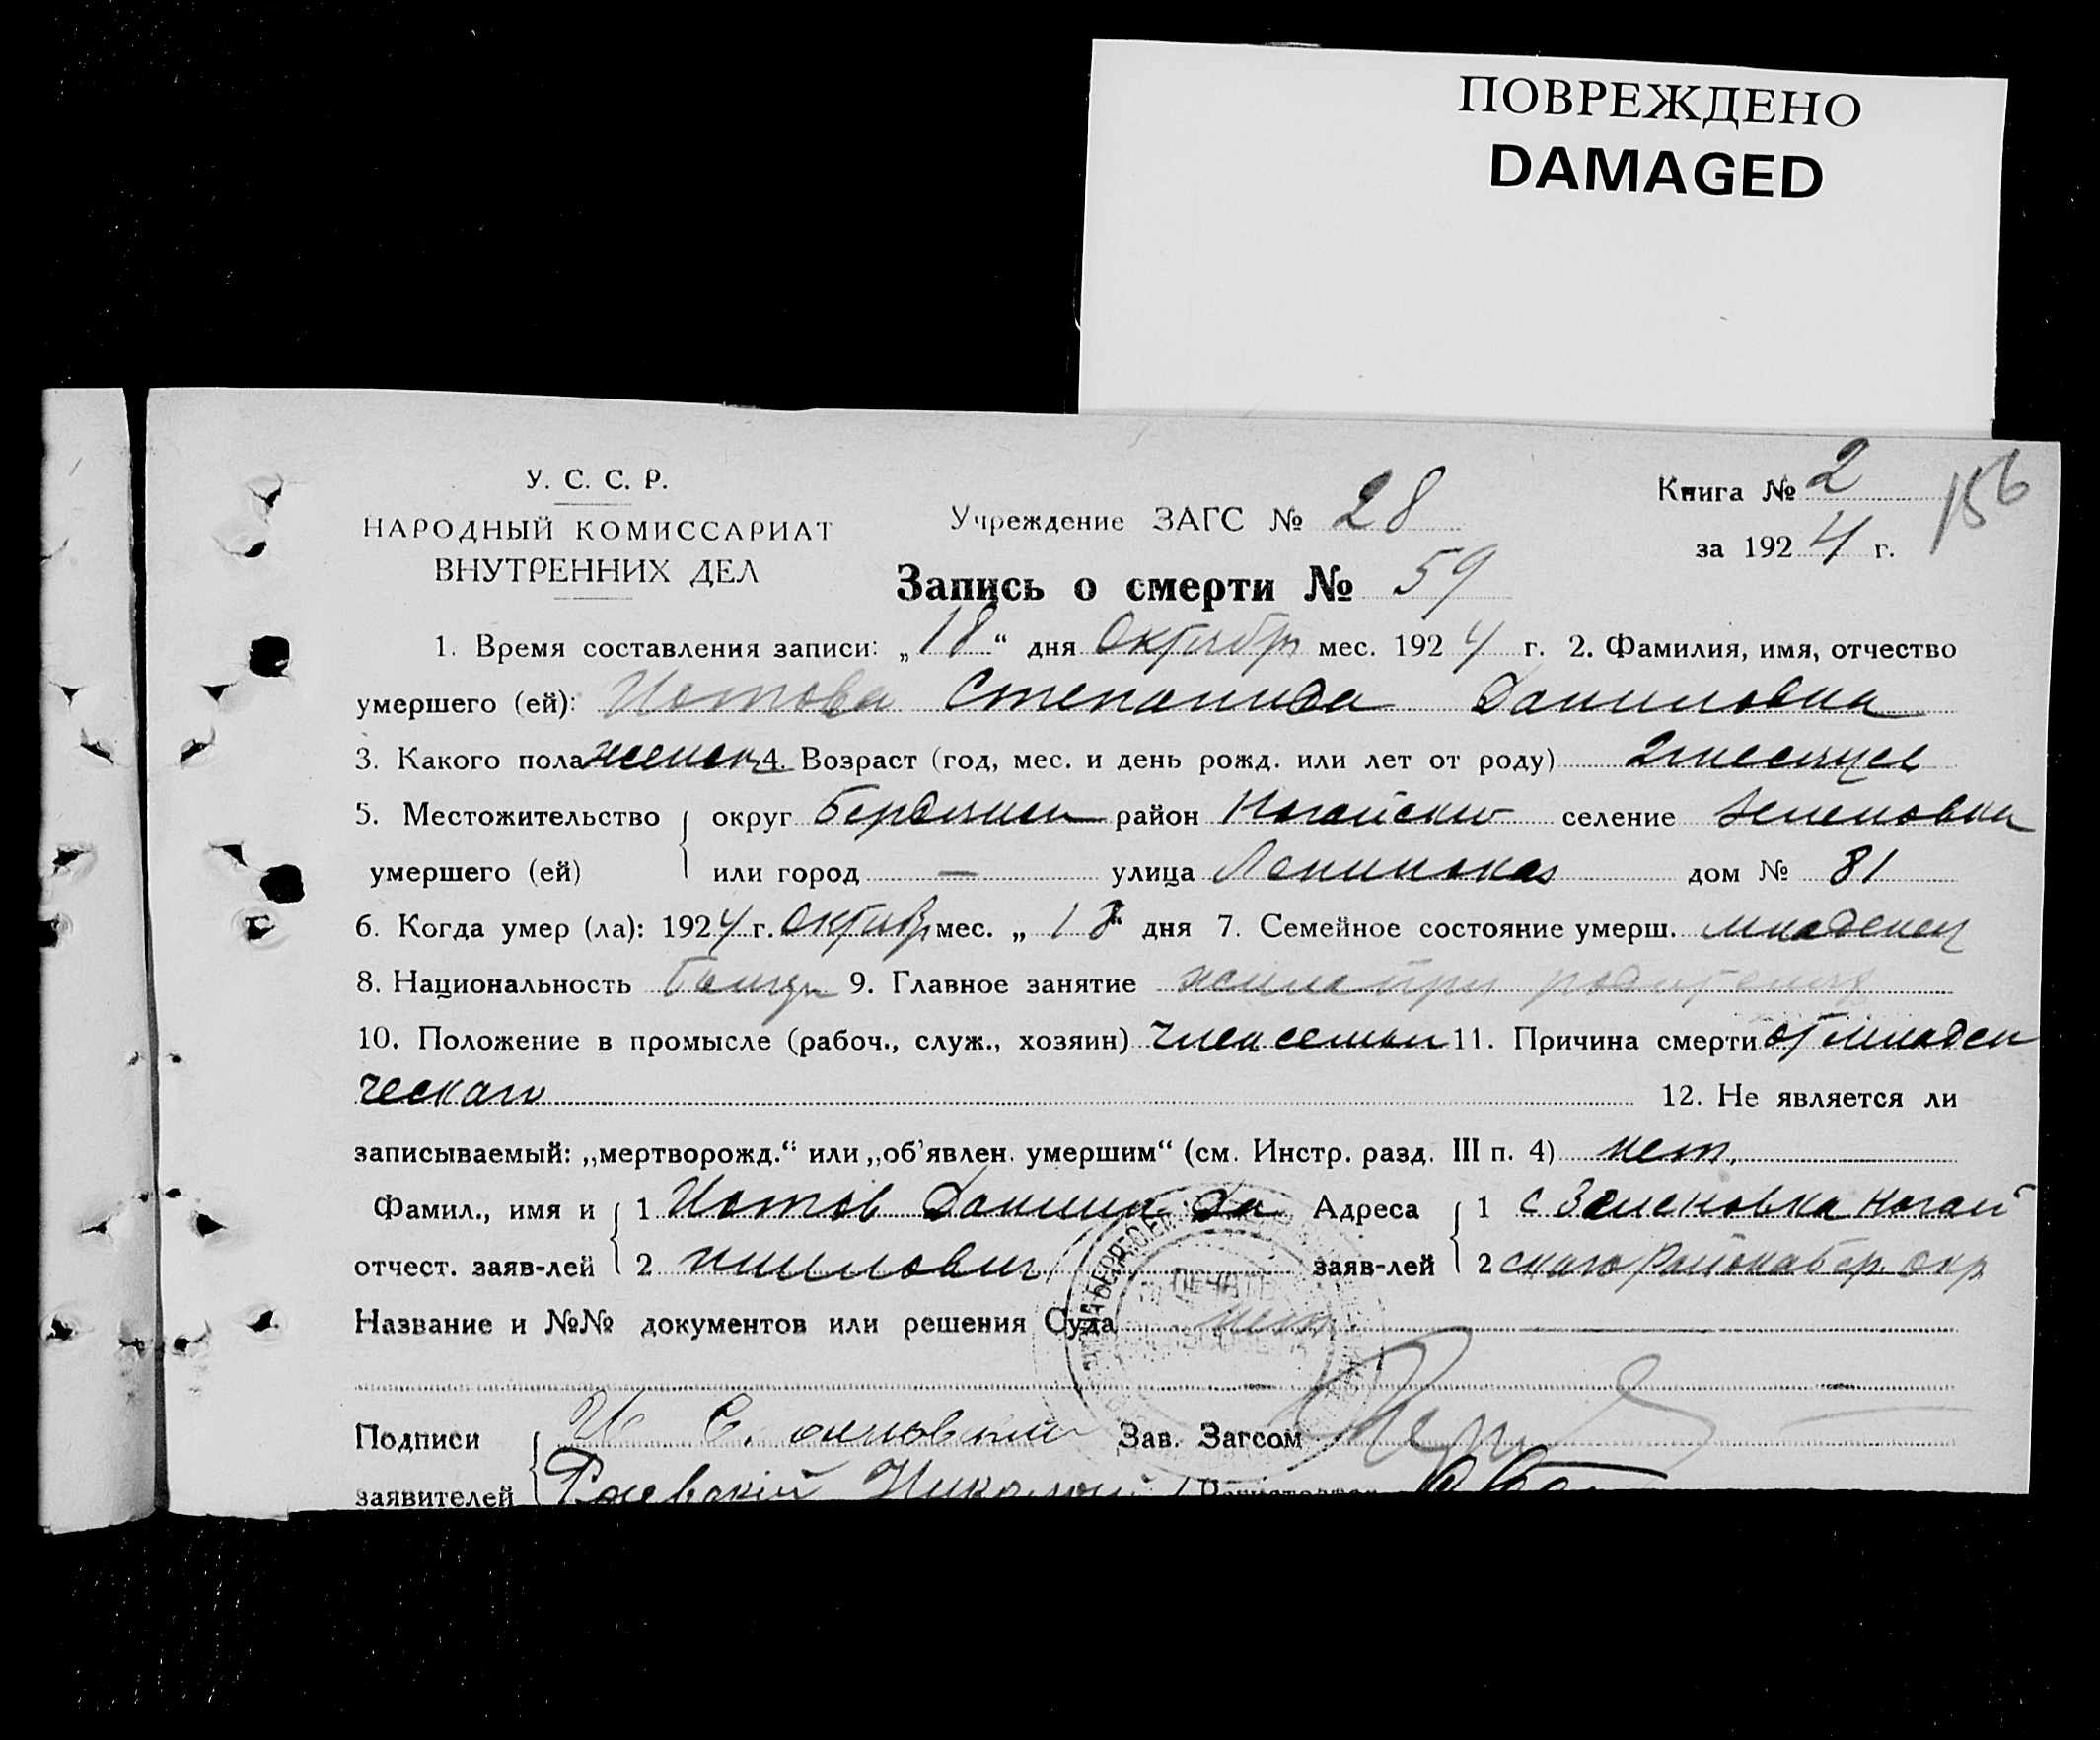 ПОВРЕЖДЕНО
DAMAGED
У. С. С. Р.
НАРОДНЫЙ КОМИССАРИАТ
ВНУТРЕННИХ ДЕЛ
Учреждение ЗАГС № 28
Книга № 2
156
за 1924 г.
Запись о смерти № 59
1. Время составления записи: „18“ дня Октября мес. 1924 г. 2. Фамилия, имя, отчество
умершего (ей): Истова Степанида Даниловна
3. Какого пола женск 4. Возраст (год, мес. и день рожд. или лет от роду) 2 месяцев
5. Местожительство округ Бердянск район Ногайский селение Зеленовка
умершего (ей) или город — улица Ленинская дом № 81
6. Когда умер (ла): 1924 г. Октябр мес. „18“ дня 7. Семейное состояние умерш. младенец
8. Национальность 9. Главное занятие жила при родителях
10. Положение в промысле (рабоч., служ., хозяин) член семьи 11. Причина смерти от младен
ческаго 12. Не является ли
записываемый: „мертворожд.“ или „об'явлен. умершим“ (см. Инстр. разд. III п. 4) нет.
Фамил., имя и 1 Истов Даниил Да Адреса 1 с Зеленовка Ногай
отчест. заяв-лей 2 ниилович заяв-лей 2 скаго Района Бер. окр
Название и №№ документов или решения Суда нет
ПЕЧАТЬ
Подписи Зав. Загсом
заявителей Николай